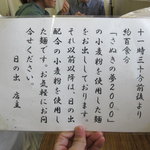 十一時三十分前後より
約百食分
「さぬきの夢2000」
の小麦粉を使用した麺
をお出ししております。
それ以前以降は、日の出
配合の小麦粉を使用し
た麺です。お気軽にお問
合せください。
日の出 店主